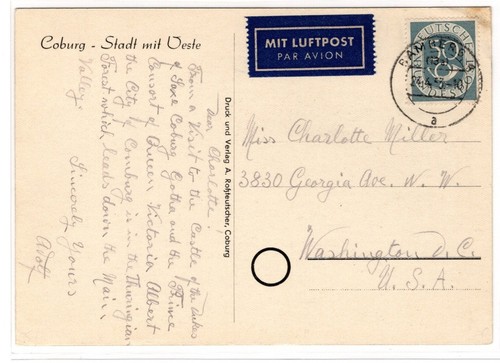 Coburg - Stadt mit Veste
MIT LUFTPOST
PAR AVION
DEUTSCHE
dear Charlotte!
From a Visit to the Castle of the Dukes
of Saxe Coburg Gotha and the Prince
Consort of Queen Victoria Albert
the City of Comburg is in the Thuringian
Forest which leads down the Main
Valley.
Sincerely Yours
Adolf
Druck und Verlag A. Roßteutscher, Coburg
Miss Charlotte Miller
3830 Georgia Ave. N. W.
Washington d.C.
U.S.A.